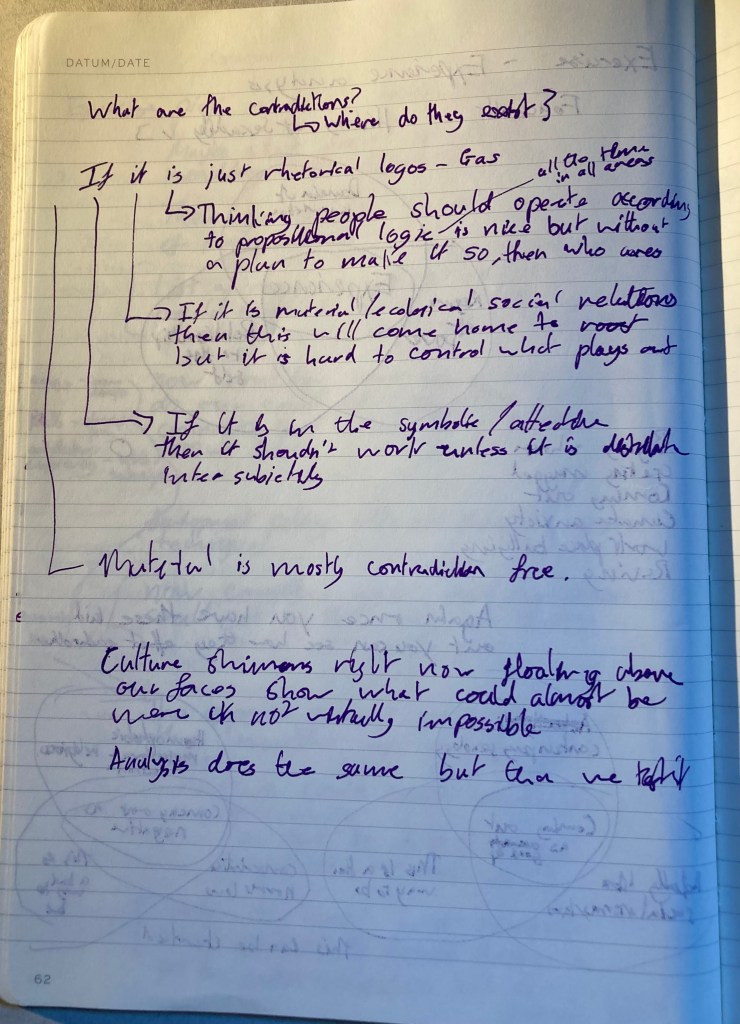 DATUM/DATE
What are the contradictions?
↳ Where do they exist?
If it is just rhetorical logos – Gas
all the time
in all areas
↳ Thinking people should operate according
to propositional logic is nice but without
a plan to make it so, then who cares
→ If it is material / ecological social relations
then this will come home to roost
but it is hard to control what plays out
→ If it is in the symbolic / affective
then it shouldn't work unless it is
inter subjectively
Material is mostly contradiction free.
Culture shimmers right now floating above
our faces show what could almost be
were it not virtually impossible
Analysis does the same but then we
62